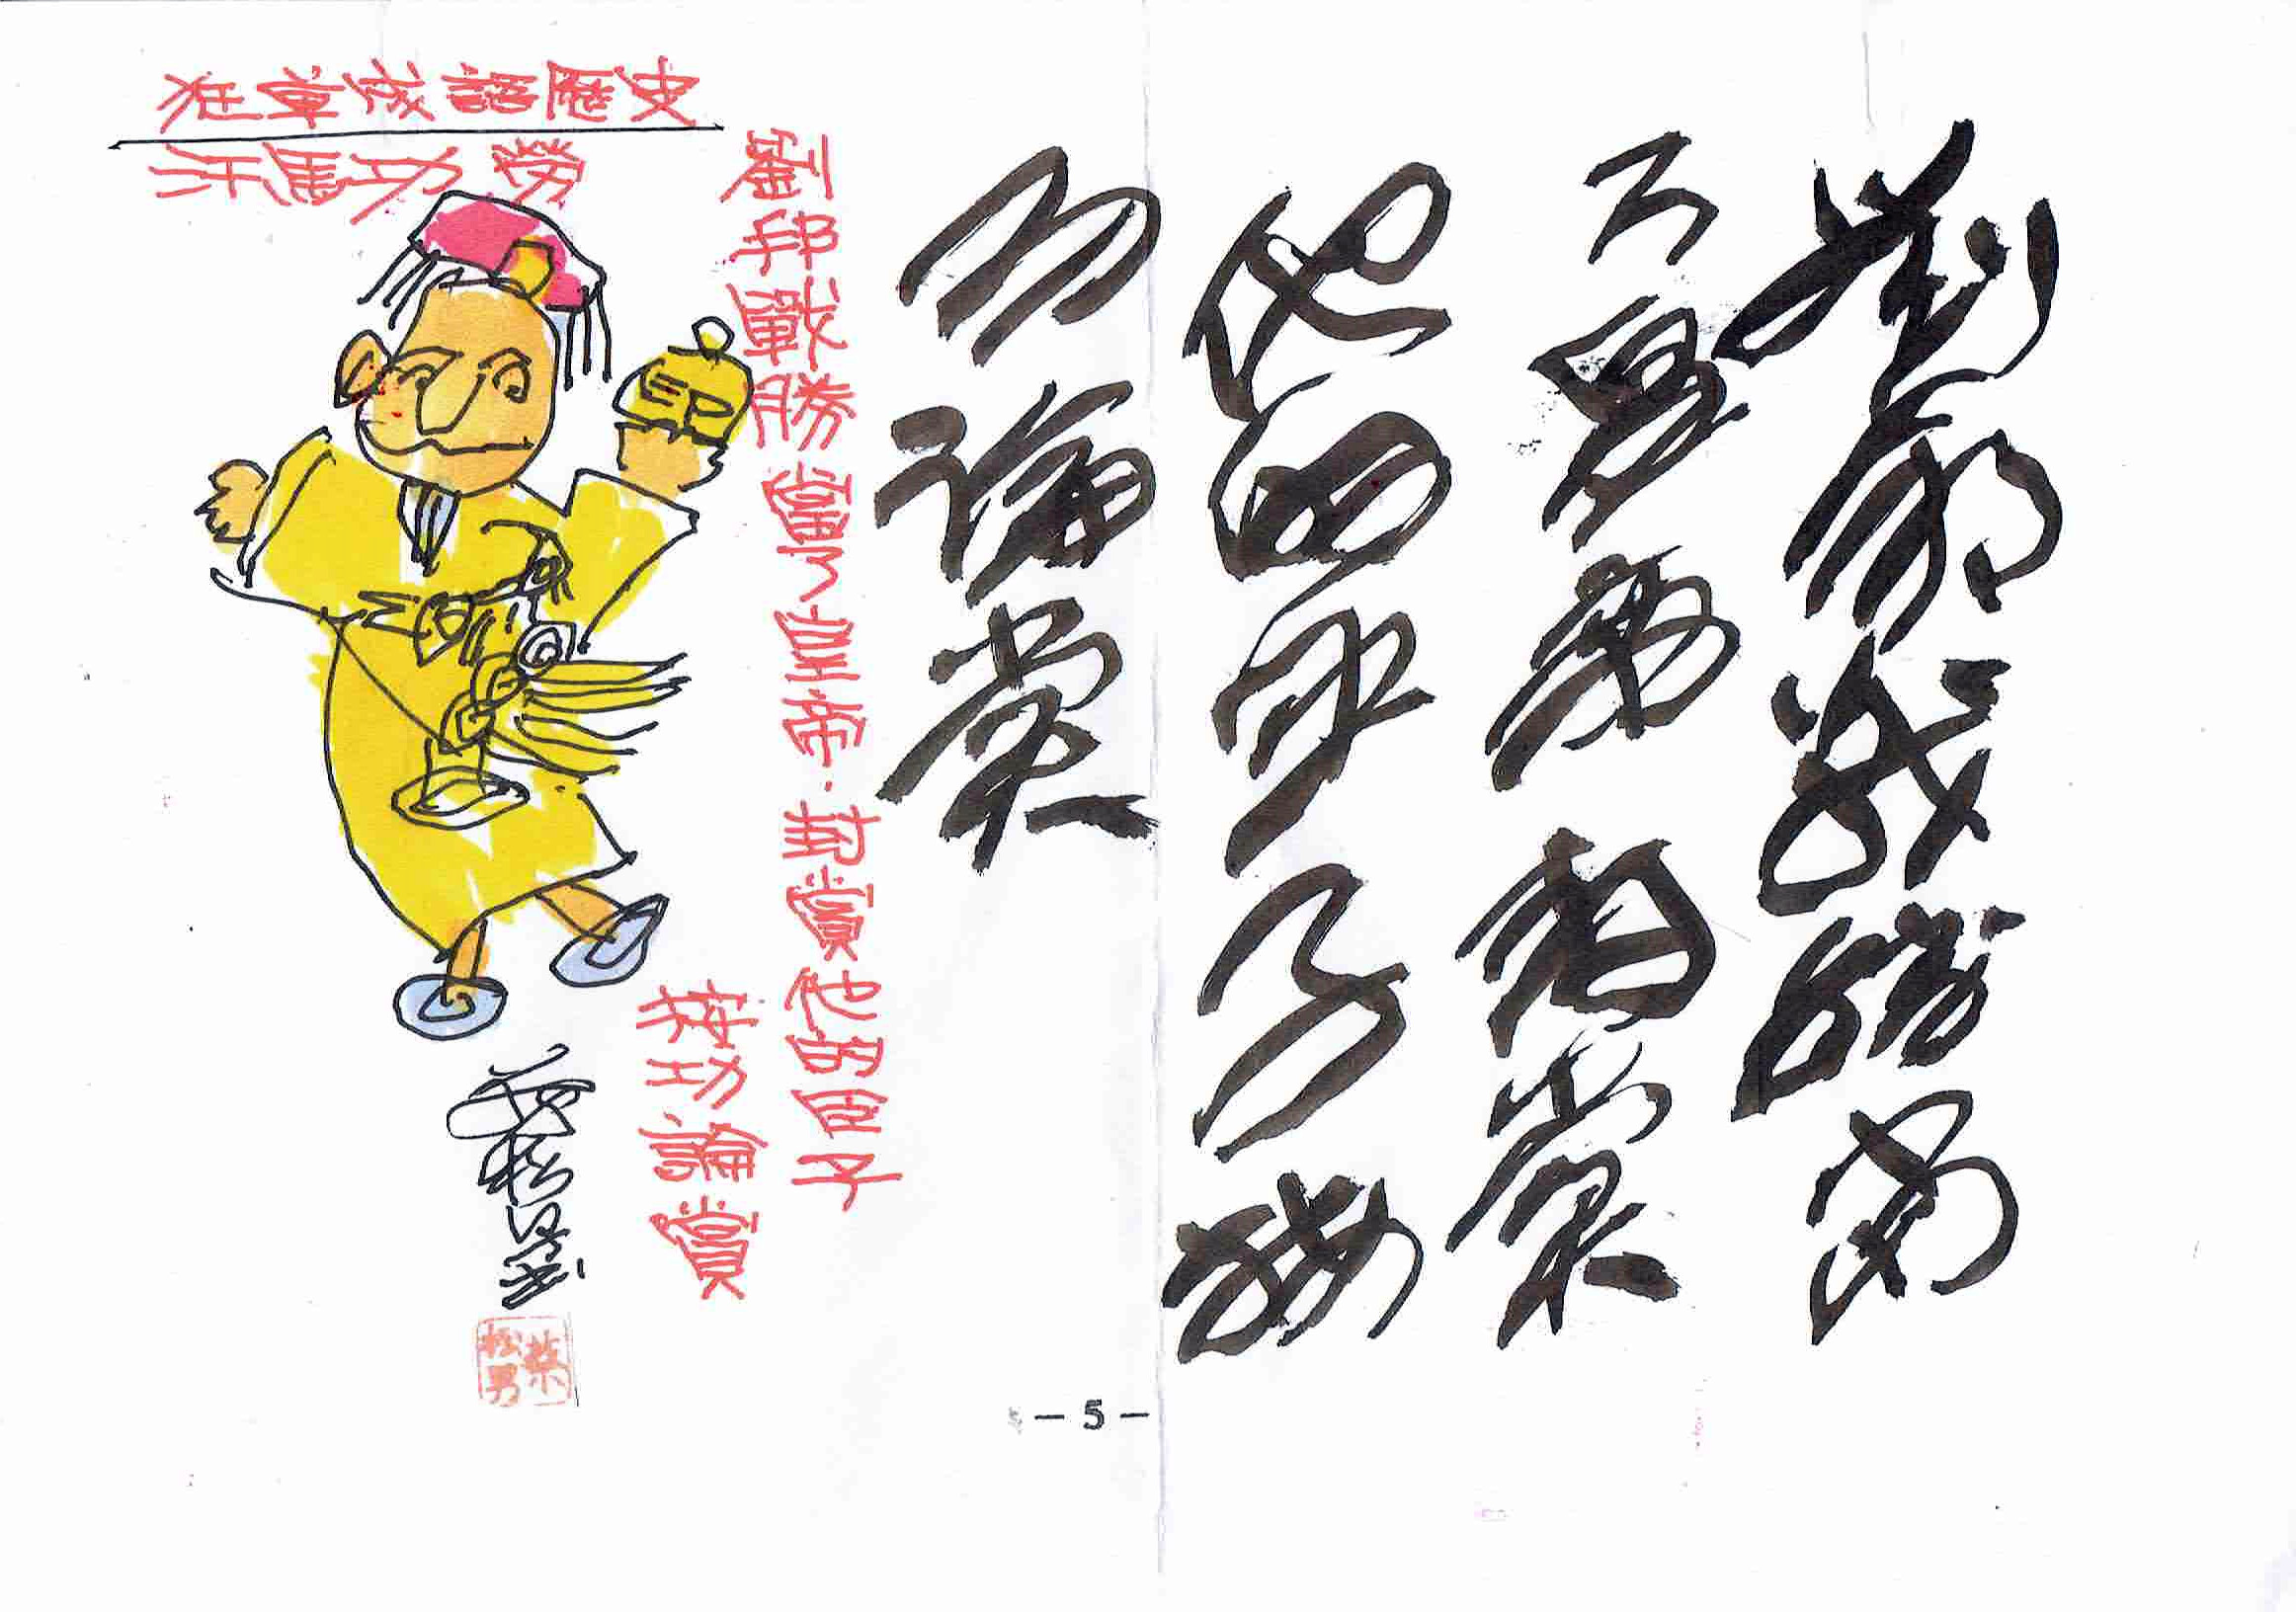 狂草成語歷史
汗馬功勞
劉邦戰勝當了皇帝.封賞他的臣子
按功論賞
劉邦戰勝當
了皇帝封賞
他的臣子按
功論賞
蔡松男
印
- 5 -